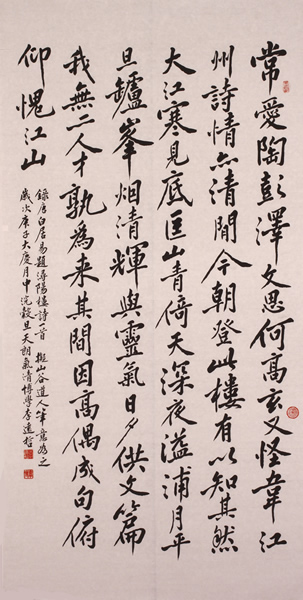 常愛陶彭澤文思何高玄又怪韋江
州詩情亦清閒今朝登此樓有以知其然
大江寒見底匡山青倚天深夜湓浦月平
旦鑪峯烟清輝與靈氣日夕供文篇
我無二人才孰為來其間因高偶成句俯
仰愧江山
錄唐白居易題潯陽樓詩一首 擬山谷道人筆意為之
歲次庚子大慶月中浣穀旦天朗氣清博學李遠哲